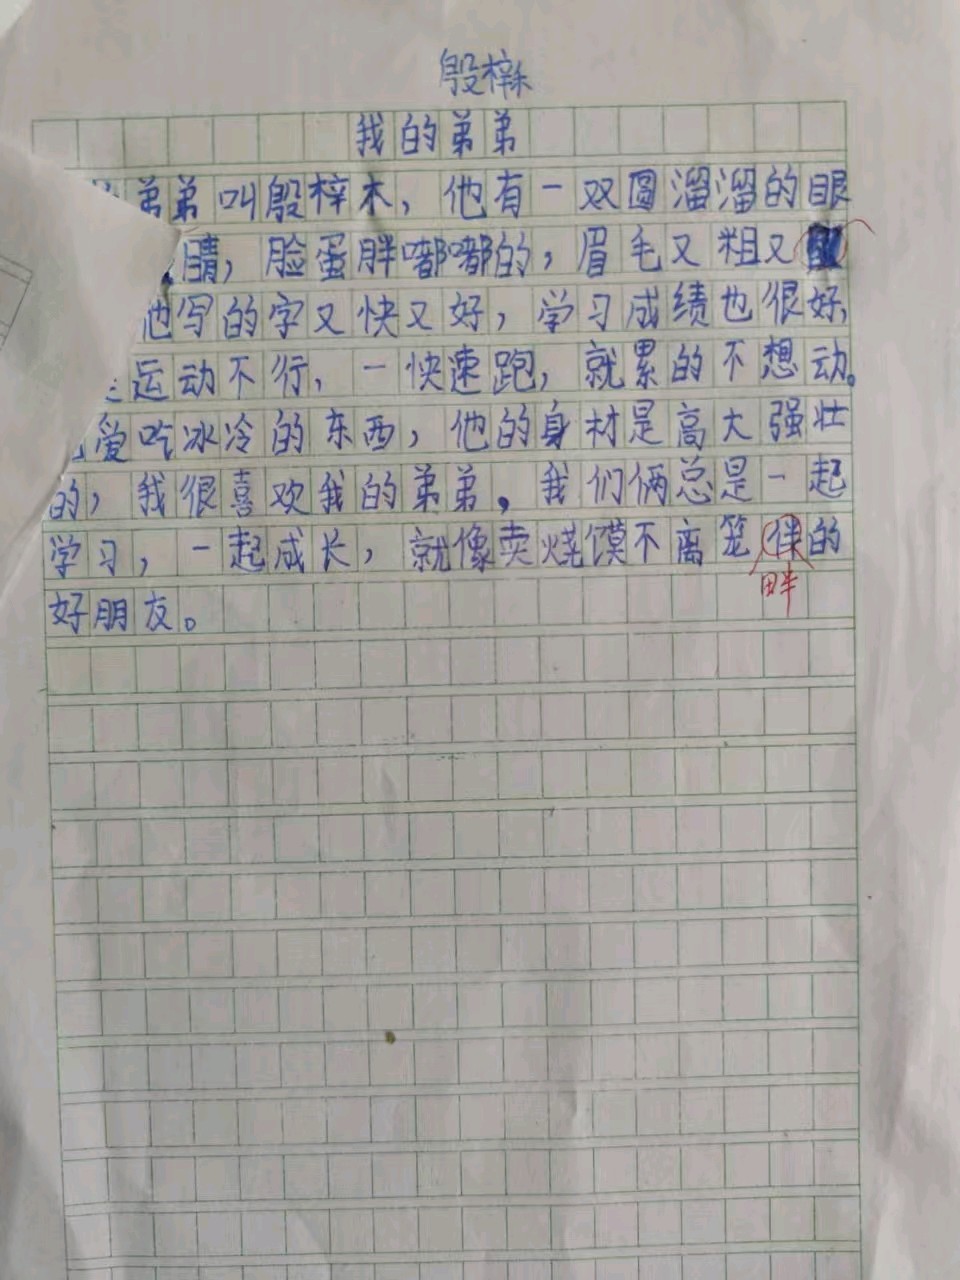 殷梓禾
我的弟弟
弟弟叫殷梓木，他有一双圆溜溜的眼
睛，脸蛋胖嘟嘟的，眉毛又粗又
他写的字又快又好，学习成绩也很好，
运动不行，一快速跑，就累的不想动。
爱吃冰冷的东西，他的身材是高大强壮
的，我很喜欢我的弟弟。我们俩总是一起
学习，一起成长，就像卖烧馍不离笼伴的
畔
好朋友。